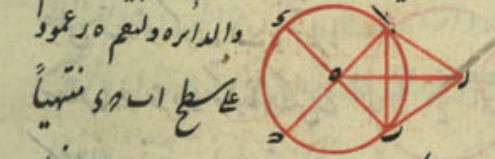 والدائره وليقم ه ر عمود
على سطح اب ح د منتهياً
د
ا
ه
ر
ح
ب